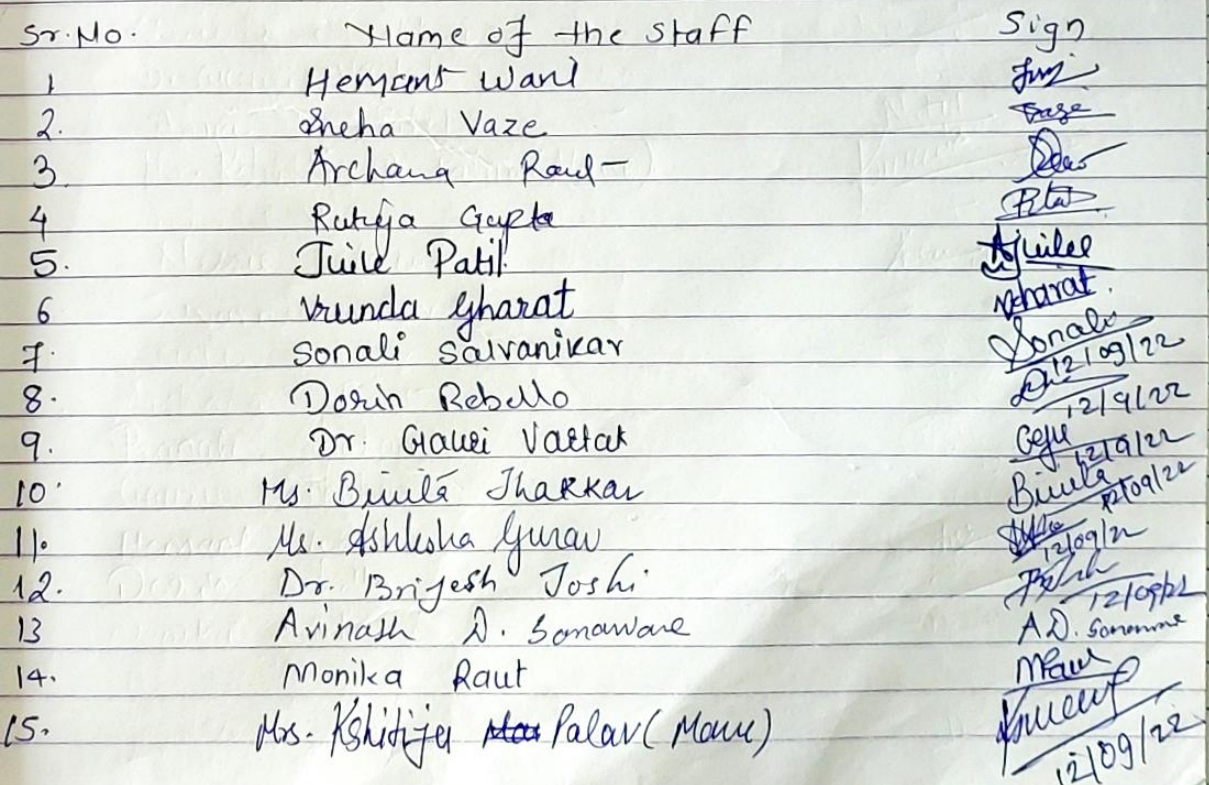 Sr.No. Name of the Staff Sign
1 Hemant Wani
2. Sneha Vaze Vaze
3. Archana Raut
4 Rutuja Gupta
5. Juile Patil Juilee
6 Vrunda Gharat Gharat.
7. Sonali Salvankar Sonali
12/09/22
8. Dorin Rebello
12/9/22
9. Dr. Gauri Vartak
12/9/22
10. Ms. Binita Thakkar Binita
12/09/22
11. Ms. Ashlesha Gurav
12/09/22
12. Dr. Brijesh Joshi
12/09/22
13 Avinash D. Sonaware A.D. Sonawane
14. Monika Raut MRaut
15. Mrs. Kshitija Palav (More)
12/09/22